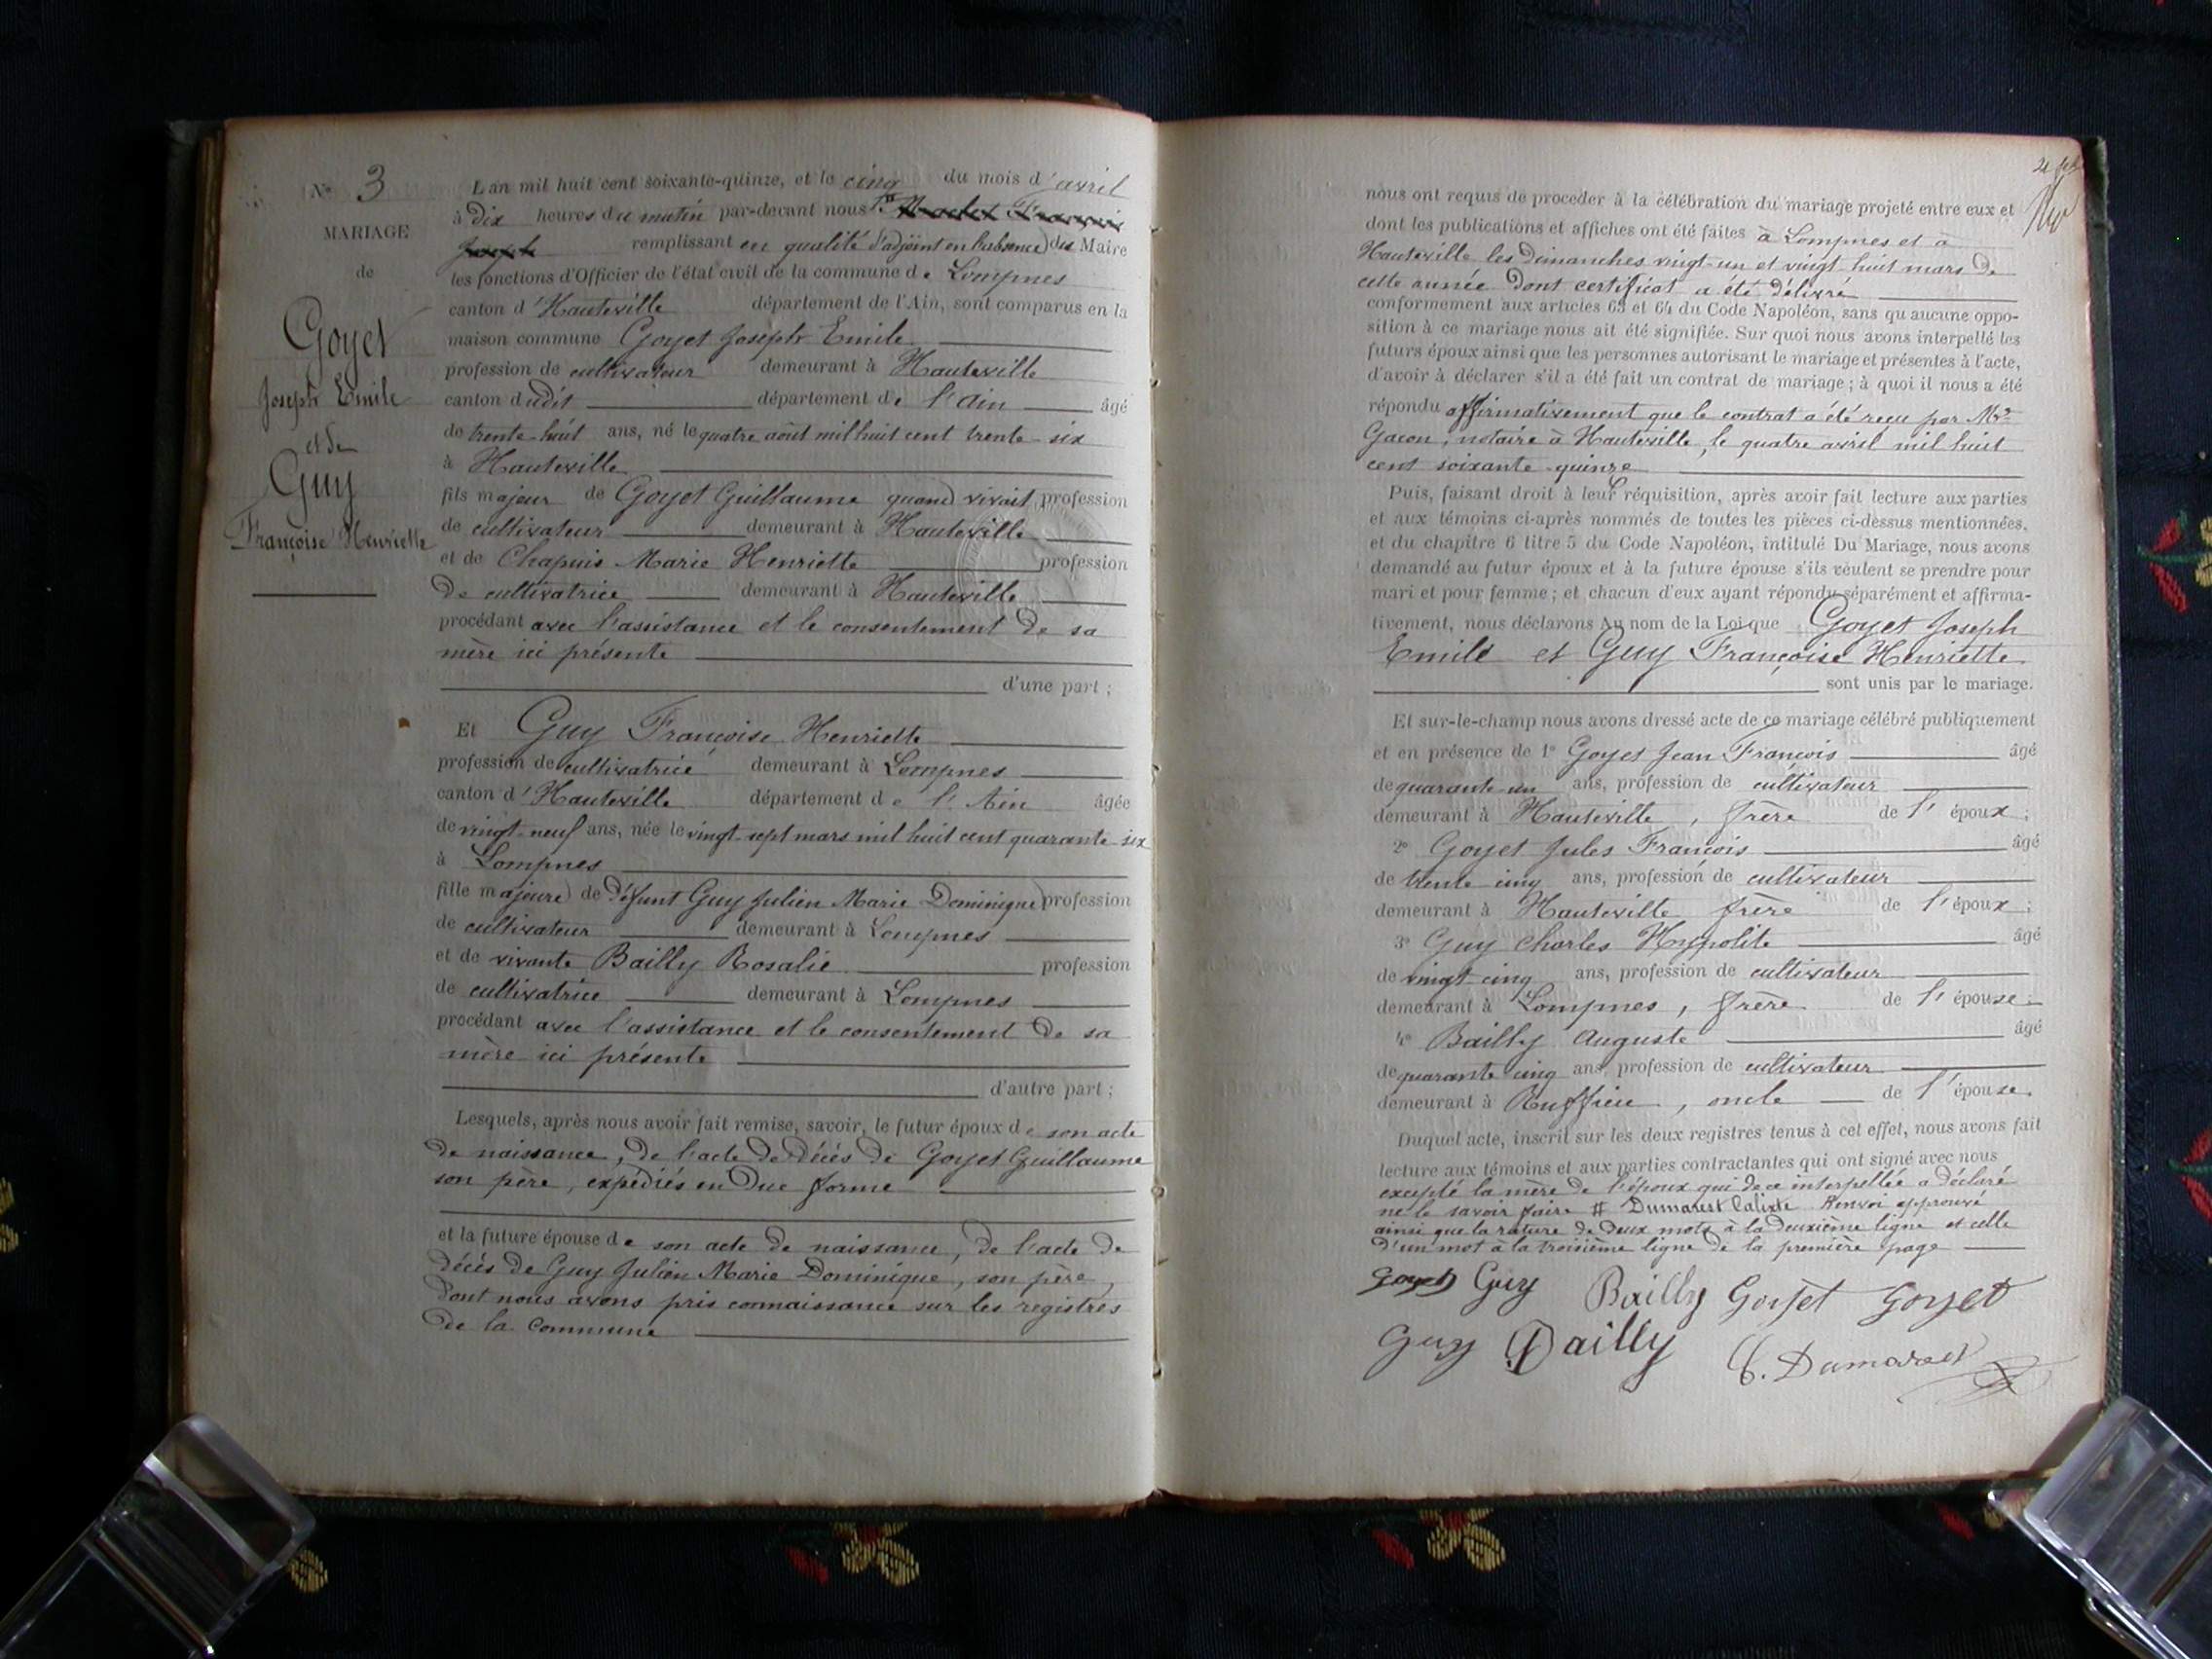 No 3
MARIAGE
de
Goyet
Joseph Emile
et de
Guy
Françoise Henriette
L'an mil huit cent soixante-quinze, et le cinq du mois d'avril
à dix heures du matin par-devant nous
Joseph remplissant en qualité d'adjoint en l'absence du Maire
les fonctions d'Officier de l'état civil de la commune de Lompnes
canton d'Hauteville département de l'Ain, sont comparus en la
maison commune Goyet Joseph Emile
profession de cultivateur demeurant à Hauteville
canton dudit département de l'Ain âgé
de trente huit ans, né le quatre août mil huit cent trente-six
à Hauteville
fils majeur de Goyet Guillaume quand vivait, profession
de cultivateur demeurant à Hauteville
et de Chapuis Marie Henriette profession
de cultivatrice demeurant à Hauteville
procédant avec l'assistance et le consentement de sa
mère ici présente
d'une part ;
Et Guy Françoise Henriette
profession de cultivatrice demeurant à Lompnes
canton d'Hauteville département de l'Ain âgée
de vingt-neuf ans, née le vingt-sept mars mil huit cent quarante-six
à Lompnes
fille majeure de défunt Guy Julien Marie Dominique profession
de cultivateur demeurant à Lompnes
et de vivante Bailly Rosalie profession
de cultivatrice demeurant à Lompnes
procédant avec l'assistance et le consentement de sa
mère ici présente
d'autre part ;
Lesquels, après nous avoir fait remise, savoir, le futur époux de son acte
de naissance, de l'acte de décès de Goyet Guillaume
son père, expédiés en due forme
et la future épouse de son acte de naissance, de l'acte de
décès de Guy Julien Marie Dominique, son père,
dont nous avons pris connaissance sur les registres
de la commune
nous ont requis de procéder à la célébration du mariage projeté entre eux et
dont les publications et affiches ont été faites à Lompnes et à
Hauteville les dimanches vingt-un et vingt-huit mars de
cette année dont certificat a été délivré
conformement aux articles 63 et 64 du Code Napoléon, sans qu'aucune oppo-
sition à ce mariage nous ait été signifiée. Sur quoi nous avons interpellé les
futurs époux ainsi que les personnes autorisant le mariage et présentes à l'acte,
d'avoir à déclarer s'il a été fait un contrat de mariage ; à quoi il nous a été
répondu affirmativement que le contrat a été reçu par Mre
Gacon, notaire à Hauteville, le quatre avril mil huit
cent soixante-quinze
Puis, faisant droit à leur réquisition, après avoir fait lecture aux parties
et aux témoins ci-après nommés de toutes les pièces ci-dessus mentionnées,
et du chapitre 6 titre 5 du Code Napoléon, intitulé Du Mariage, nous avons
demandé au futur époux et à la future épouse s'ils veulent se prendre pour
mari et pour femme ; et chacun d'eux ayant répondu séparément et affirma-
tivement, nous déclarons Au nom de la Loi que Goyet Joseph
Emile et Guy Françoise Henriette
sont unis par le mariage.
Et sur-le-champ nous avons dressé acte de ce mariage célébré publiquement
et en présence de 1° Goyet Jean François âgé
de quarante-un ans, profession de cultivateur
demeurant à Hauteville, frère de l'époux ;
2° Goyet Jules François âgé
de trente cinq ans, profession de cultivateur
demeurant à Hauteville frère de l'époux ;
3° Guy Charles Hyppolite âgé
de vingt cinq ans, profession de cultivateur
demeurant à Lompnes, frère de l'épouse
4° Bailly Auguste âgé
de quarante cinq ans, profession de cultivateur
demeurant à Ruffieu, oncle de l'épouse.
Duquel acte, inscrit sur les deux registres tenus à cet effet, nous avons fait
lecture aux témoins et aux parties contractantes qui ont signé avec nous
excepté la mère de l'époux qui de ce interpellée a déclaré
ne le savoir faire # Dumarest Calixte Renvoi approuvé
ainsi que la rature de deux mots à la deuxième ligne et celle
d'un mot à la troisième ligne de la première page
Goyet Guy Bailly Goyet Goyet
Guy Bailly C. Dumarest